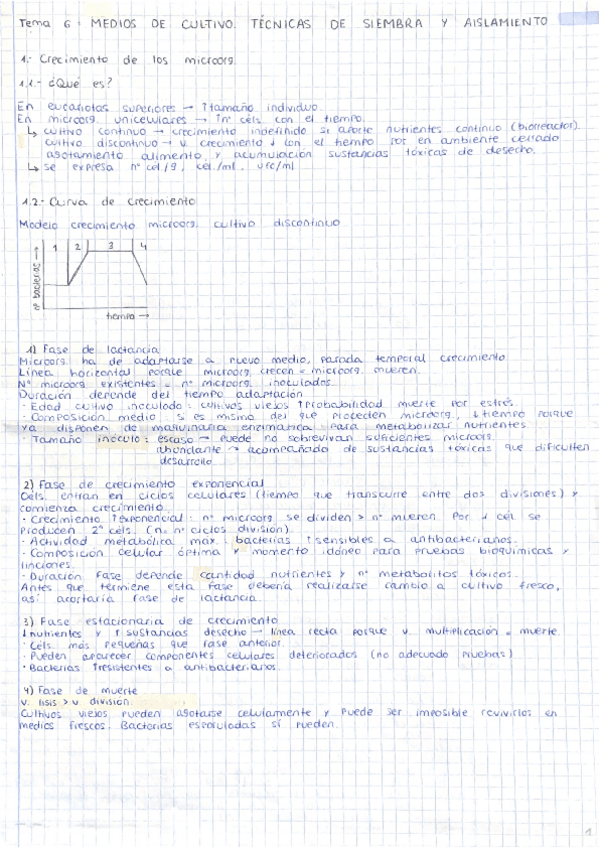 Tema 6: MEDIOS DE CULTIVO. TÉCNICAS DE SIEMBRA Y AISLAMIENTO
1.- Crecimiento de los microorg.
1.1.- ¿Qué es?
En eucariotas superiores → ↑tamaño individuo.
En microorg. unicelulares → ↑nº céls. con el tiempo.
↳ cultivo continuo → crecimiento indefinido si aporte nutrientes continuo (biorreactor).
cultivo discontinuo → v. crecimiento ↓ con el tiempo por en ambiente cerrado
agotamiento alimento y acumulación sustancias tóxicas de desecho.
↳ se expresa nº cél/g, cél./ml, ufc/ml
1.2.- Curva de crecimiento
Modelo crecimiento microorg. cultivo discontinuo
1 2 3 4
nº bacterias →
tiempo →
1) Fase de lactancia
Microorg. ha de adaptarse a nuevo medio, parada temporal crecimiento
Línea horizontal porque microorg. crecen = microorg. mueren.
Nº microorg. existentes = nº microorg. inoculados.
Duración depende del tiempo adaptación
· Edad cultivo inoculado: cultivos viejos ↑probabilidad muerte por estrés.
· Composición medio: si es mismo del que proceden microorg., ↓tiempo porque
ya disponen de maquinaria enzimática para metabolizar nutrientes.
· Tamaño inóculo: escaso → puede no sobrevivan suficientes microorg.
abundante → acompañada de sustancias tóxicas que dificulten
desarrollo.
2) Fase de crecimiento exponencial
Céls. entran en ciclos celulares (tiempo que transcurre entre dos divisiones) y
comienza crecimiento.
· Crecimiento ↑exponencial: nº microorg. se dividen > nº mueren. Por 1 cél. se
producen 2ⁿ céls. (n: nº ciclos división).
· Actividad metabólica máx. bacterias ↑sensibles a antibacterianos.
· Composición celular óptima y momento idóneo para pruebas bioquímicas y
tinciones.
· Duración fase depende cantidad nutrientes y nº metabolitos tóxicos.
Antes que termine esta fase debería realizarse cambio a cultivo fresco,
así acortaría fase de lactancia.
3) Fase estacionaria de crecimiento
↓nutrientes y ↑sustancias desecho → línea recta porque v. multiplicación = muerte.
· Céls. más pequeñas que fase anterior.
· Pueden aparecer componentes celulares deteriorados (no adecuado pruebas)
· Bacterias ↑resistentes a antibacterianos.
4) Fase de muerte
v. lisis > v. división.
Cultivos viejos pueden agotarse celularmente y puede ser imposible revivirlos en
medios frescos. Bacterias esporuladas sí pueden.
1